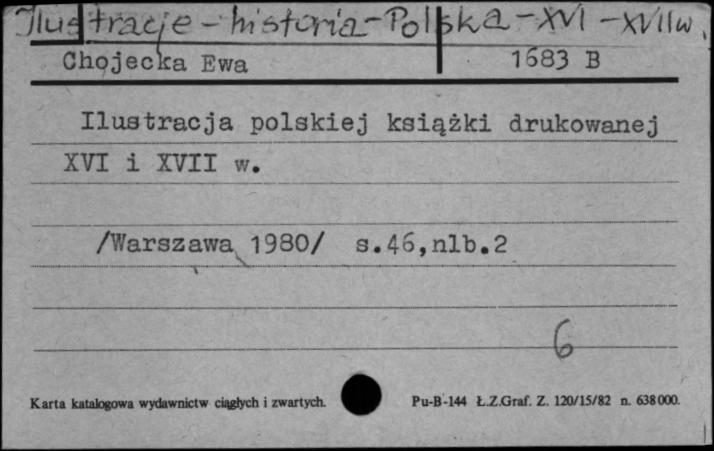 Ilustracje - historia - Polska - XVI - XVII w.
Chojecka Ewa 1683 B
Ilustracja polskiej książki drukowanej
XVI i XVII w.
/Warszawa 1980/ s.46,nlb.2
6
Karta katalogowa wydawnictw ciągłych i zwartych. Pu-B-144 Ł.Z.Graf. Z. 120/15/82 n. 638000.